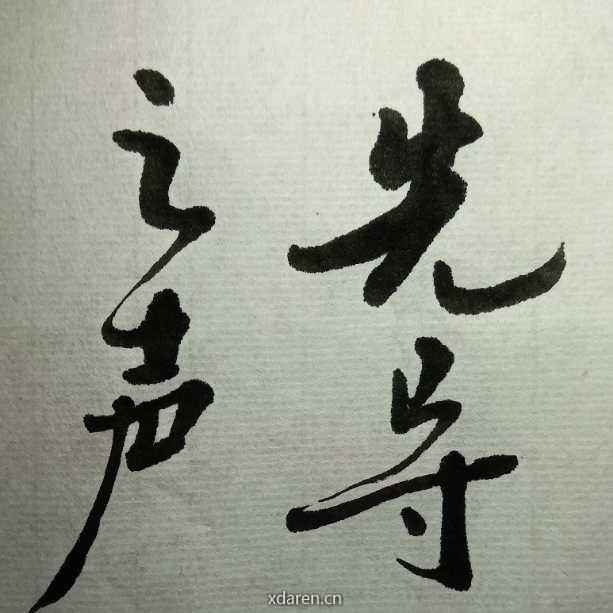 先导
之声
xdaren.cn